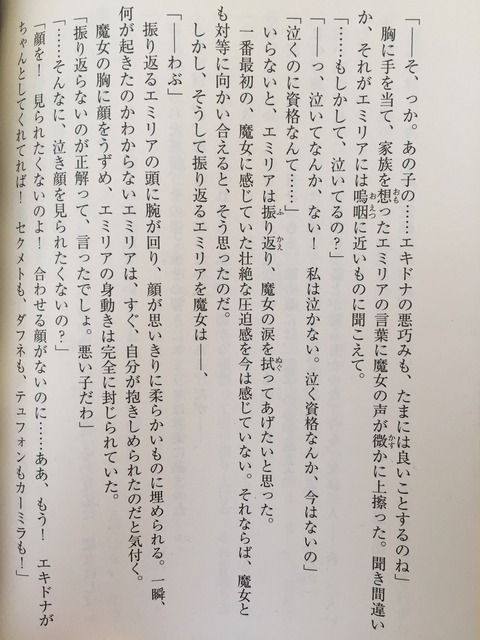 「――そ、っか。あの子の……エキドナの悪巧みも、たまには良いことするのね」
胸に手を当て、家族を想ったエミリアの言葉に魔女の声が微かに上擦った。聞き間違い
か、それがエミリアには嗚咽に近いものに聞こえて。
「……もしかして、泣いてるの？」
「――っ、泣いてなんか、ない！　私は泣かない。泣く資格なんか、今はないの」
「泣くのに資格なんて……」
いらないと、エミリアは振り返り、魔女の涙を拭ってあげたいと思った。
一番最初の、魔女に感じていた壮絶な圧迫感を今は感じていない。それならば、魔女と
も対等に向かい合えると、そう思ったのだ。
しかし、そうして振り返るエミリアを魔女は――、
「――わぶ」
振り返るエミリアの頭に腕が回り、顔が思いきりに柔らかいものに埋められる。一瞬、
何が起きたのかわからないエミリアは、すぐ、自分が抱きしめられたのだと気付く。
魔女の胸に顔をうずめ、エミリアの身動きは完全に封じられていた。
「振り返らないのが正解って、言ったでしょ。悪い子だわ」
「……そんなに、泣き顔を見られたくないの？」
「顔を！　見られたくないのよ！　合わせる顔がないのに……ああ、もう！　エキドナが
ちゃんとしてくれてれば！　セクメトも、ダフネも、テュフォンもカーミラも！」